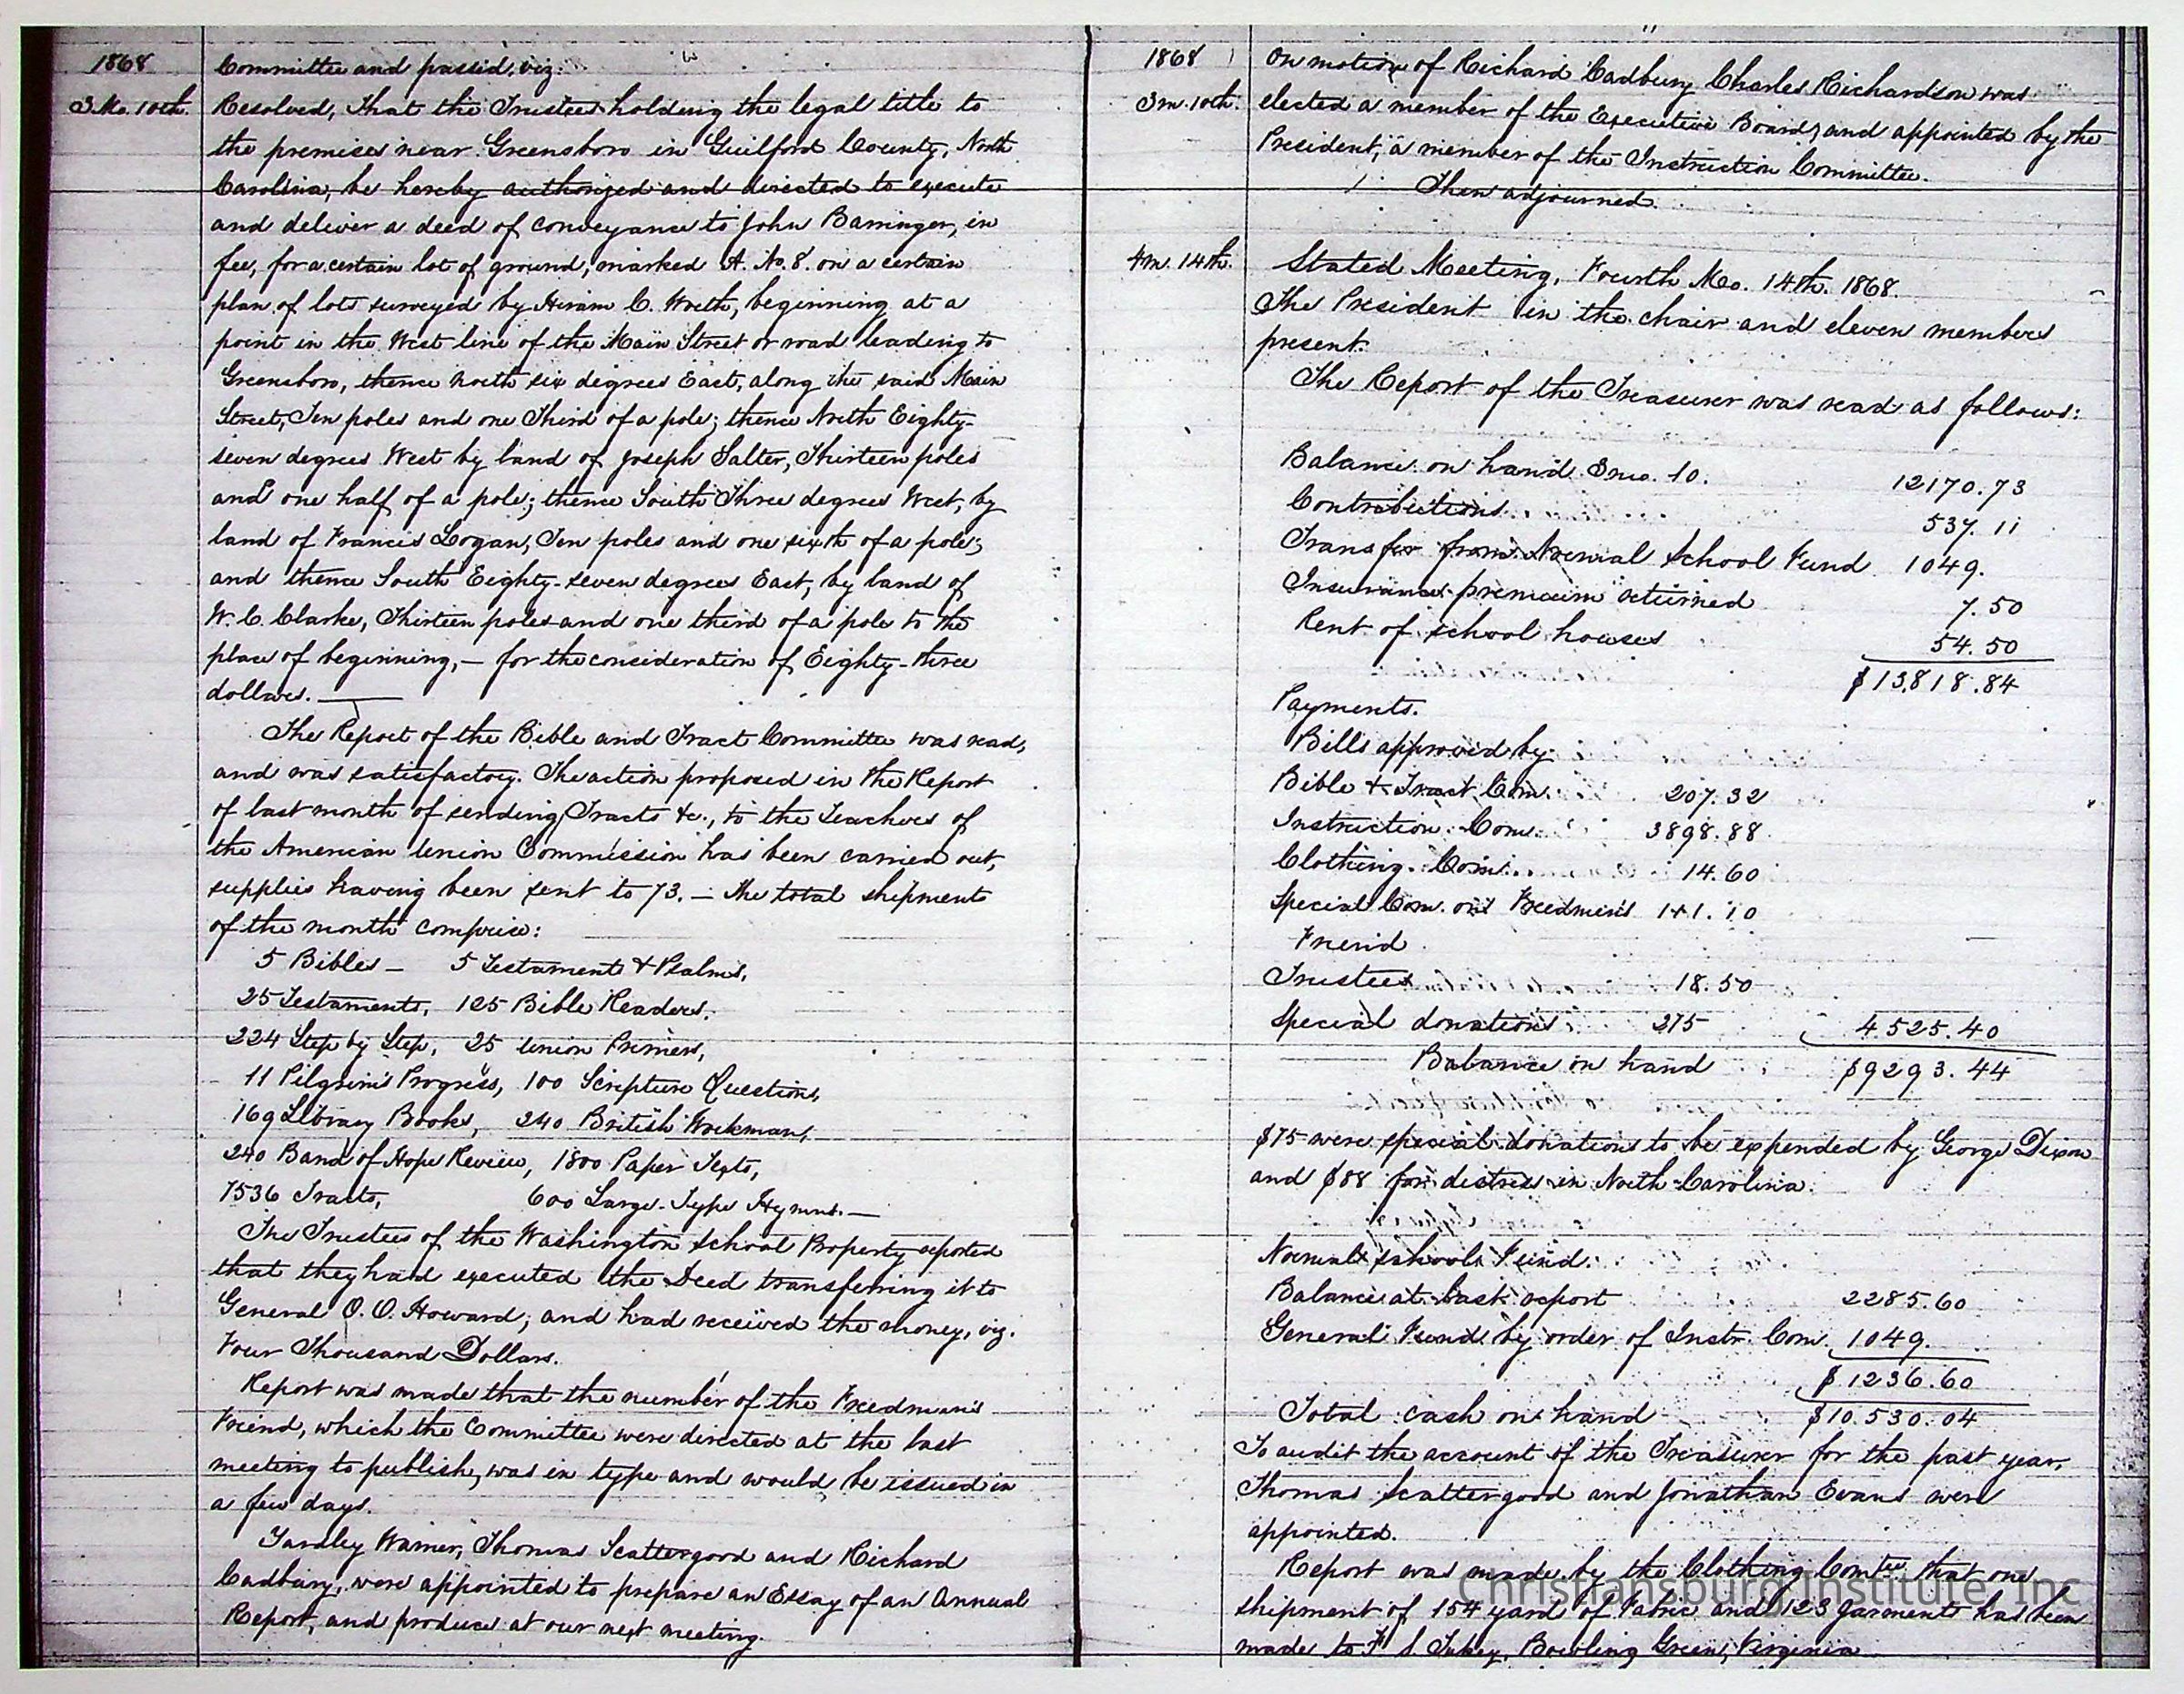 1868
Committee and passed, viz:
3.Mo. 10th.
Resolved, That the Trustees holding the legal title to
the premises near Greensboro in Guilford County, North
Carolina, be hereby authorized and directed to execute
and deliver a deed of conveyance to John Barringer, in
fee, for a certain lot of ground, marked A. No. 8. on a certain
plan of lots surveyed by Hiram C. Worth, beginning at a
point in the West line of the Main Street or road leading to
Greensboro, thence north six degrees East, along the said Main
Street, Ten poles and one Third of a pole; thence North Eighty-
seven degrees West by land of Joseph Salter, Thirteen poles
and one half of a pole; thence South Three degrees West, by
land of Francis Logan, Ten poles and one sixth of a pole;
and thence South Eighty-seven degrees East, by land of
W. C. Clarke, Thirteen poles and one third of a pole to the
place of beginning, — for the consideration of Eighty-three
dollars. —
The Report of the Bible and Tract Committee was read,
and was satisfactory. The action proposed in the Report
of last month of sending Tracts &c., to the Teachers of
the American Union Commission has been carried out,
supplies having been sent to 73. — the total shipments
of the month comprise:
5 Bibles — 5 Testaments & Psalms,
25 Testaments, 125 Bible Readers,
224 Step by Step, 25 Union Primers,
11 Pilgrim's Progress, 100 Scripture Questions,
169 Library Books, 240 British Workman,
240 Band of Hope Review, 1800 Paper Texts,
7536 Tracts, 600 Large-Type Hymns. —
The Trustees of the Washington School Property reported
that they had executed the Deed transferring it to
General O. O. Howard, and had received the money, viz.
Four Thousand Dollars.
Report was made that the number of the Freedman's
Friend, which the Committee were directed at the last
meeting to publish, was in type and would be issued in
a few days.
Yardley Warner, Thomas Scattergood and Richard
Cadbury, were appointed to prepare an Essay of an Annual
Report, and produce at our next meeting.
1868
On motion of Richard Cadbury Charles Richardson was
3m. 10th.
elected a member of the Executive Board, and appointed by the
President, a member of the Instruction Committee.
Then adjourned.
4m. 14th.
Stated Meeting, Fourth Mo. 14th. 1868.
The President in the chair and eleven members
present.
The Report of the Treasurer was read as follows:
Balance on hand 3mo. 10. 12170.73
Contributions. 537.11
Transfer from Normal School Fund 1049.
Insurance premium returned 7.50
Rent of school houses 54.50
$13,818.84
Payments.
Bills approved by
Bible & Tract Com. 207.32
Instruction Com. 3898.88
Clothing. Com. 14.60
Special Com. on Freedmen's 141.10
Friend
Trustees 18.50
Special donations 275 4.525.40
Balance on hand $9293.44
$75 were special donations to be expended by George Dixon
and $88 for distress in North Carolina.
Normal school Fund.
Balance at last report 2285.60
General Fund by order of Instr. Com. 1049.
$1236.60
Total cash on hand $10.530.04
To audit the account of the Treasurer for the past year,
Thomas Scattergood and Jonathan Evans were
appointed.
Report was made by the Clothing Comtee that one
shipment of 154 yard of Fabric and 123 garments has been
made to F. S. Bowling Green, Virginia
Christiansburg Institute, Inc